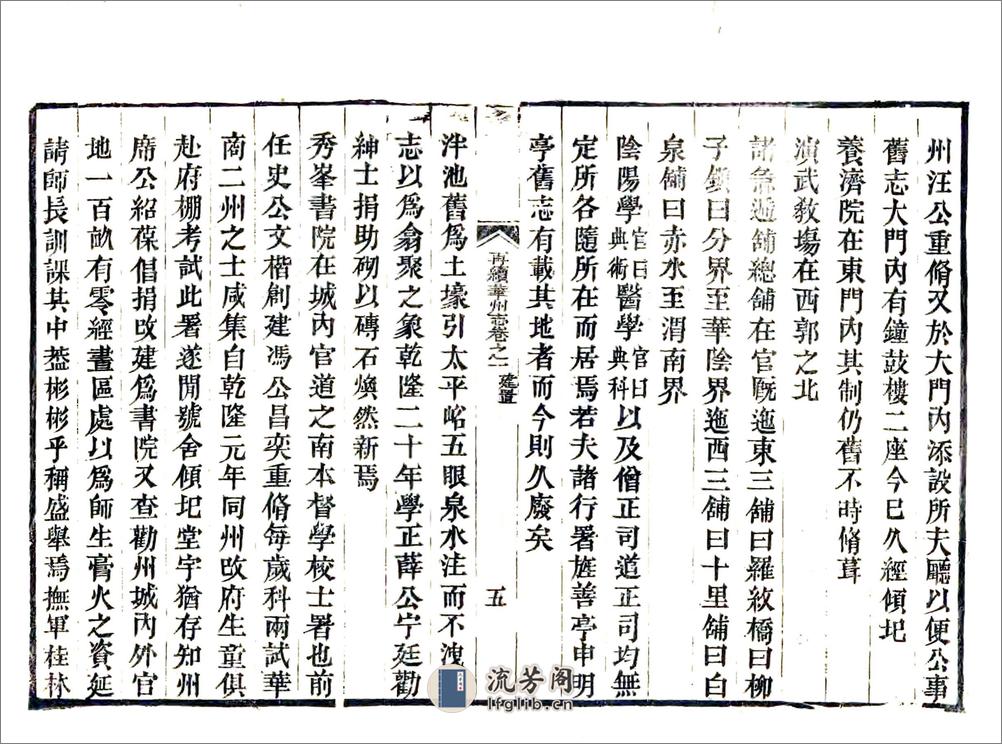 州汪公重脩又於大門內添設所夫廳以便公事
舊志大門內有鐘鼓樓二座今已久經傾圮
養濟院在東門內其制仍舊不時脩葺
演武敎塲在西郭之北
諸急遞舖總舖在官厩迤東三舖曰羅紋橋曰柳
子鎮曰分界至華陰界迤西三舖曰十里舖曰白
泉舖曰赤水至渭南界
陰陽學官曰典術醫學官曰典科以及僧正司道正司均無
定所各隨所在而居焉若夫諸行署旌善亭申明
亭舊志有載其地者而今則久廢矣
再續華州志卷之二 建置 五
泮池舊爲土壕引太平峪五眼泉水注而不洩
志以爲翕聚之象乾隆二十年學正薛公宁廷勸
紳士捐助砌以磚石煥然新焉
秀峯書院在城內官道之南本督學校士署也前
任史公文楷創建馮公昌奕重脩每歲科兩試華
商二州之士咸集自乾隆元年同州攺府生童俱
赴府棚考試此署遂閒號舍傾圮堂宇猶存知州
席公紹葆倡捐攺建爲書院又查勸州城內外官
地一百畝有零經畫區處以爲師生膏火之資延
請師長訓課其中葢彬彬乎稱盛舉焉撫軍桂林
流芳阁
lfglib.cn